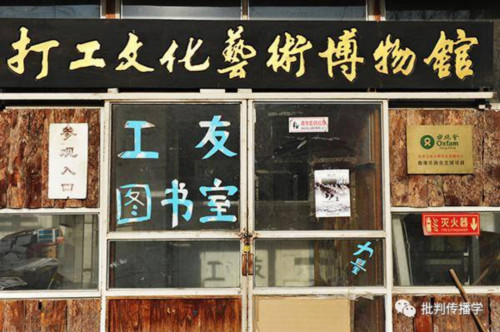 打工文化藝術博物館
参观入口
工友
图书室
力量
乐施会
Oxfam
灭火器
批判传播学